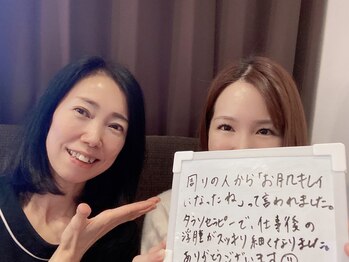 周りの人から「お肌キレイ
になったね」って言われました。
タラソセラピーで、仕事後の
浮腫がスッキリ細くなりました。
ありがとうございます